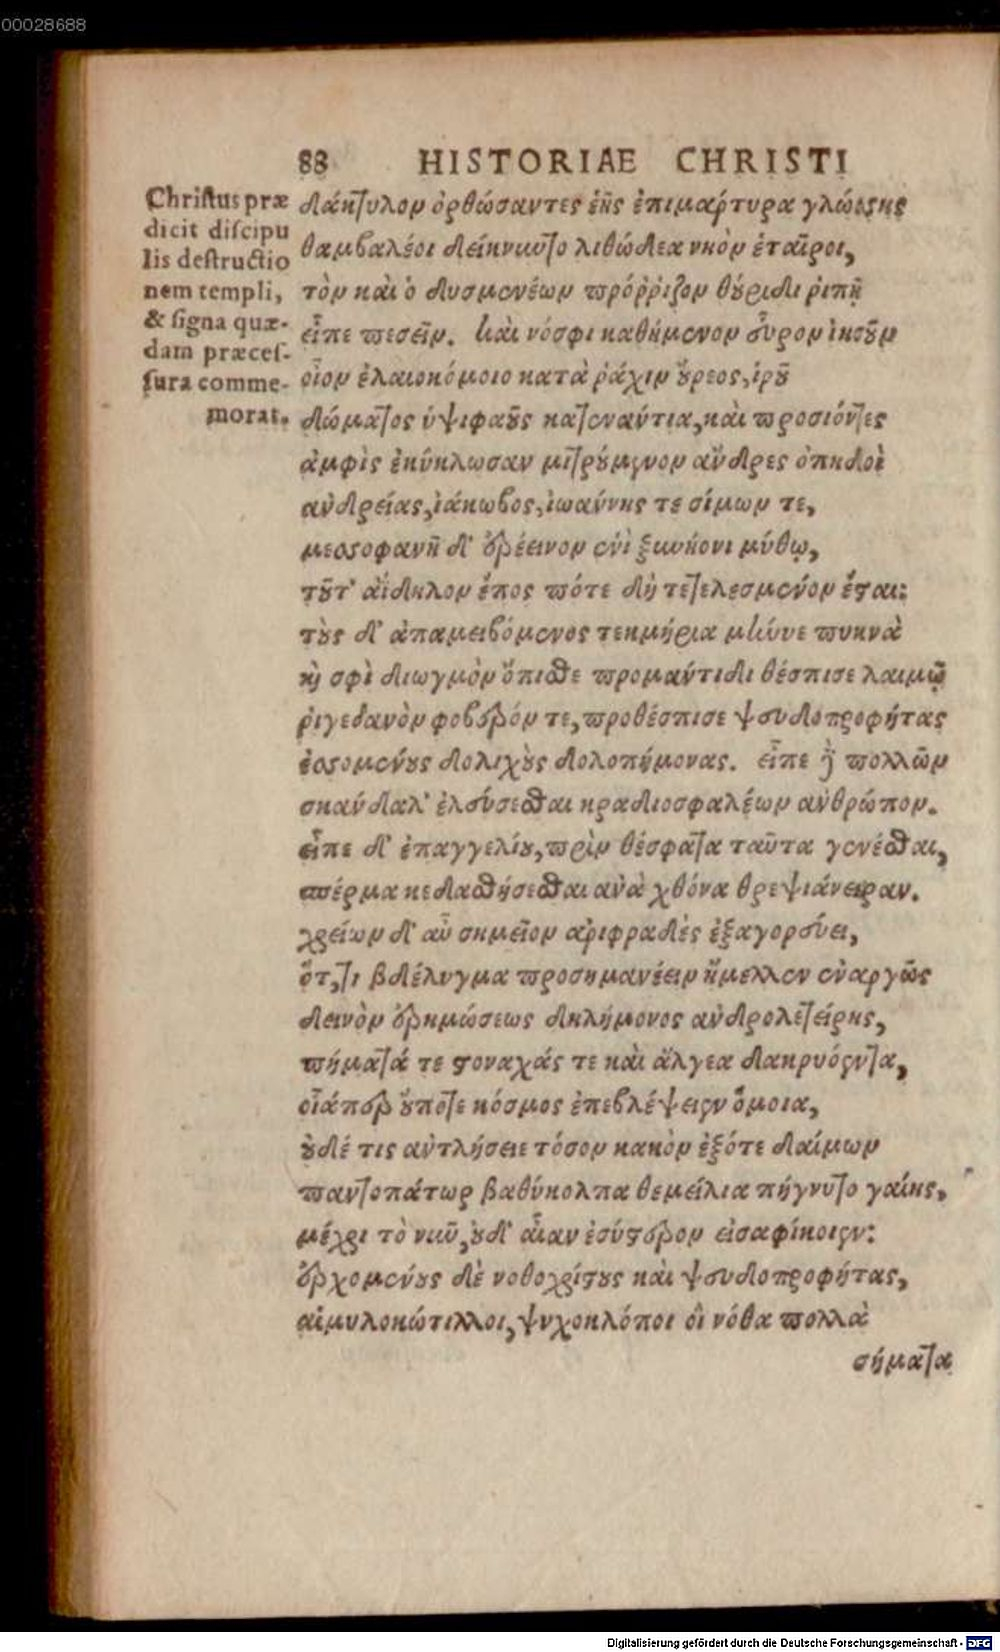 00028688
88 HISTORIAE CHRISTI
Christus præ
dicit discipu
lis destructio
nem templi,
& signa quæ-
dam præces-
sura comme-
morat.
δάκτυλον ὀρθώσαντες ἑῆς ἐπιμάρτυρα γλώσσης
θαμβαλέοι δείκνυντο λιθώδεα νηὸν ἑταῖροι,
τὸν καὶ ὁ δυσμενέων πρόῤῥιζον θούριδι ῥιπῇ
εἶπε πεσεῖν. καὶ νόσφι καθήμενον εὗρον ἰησοῦν
οἶον ἐλαιοκόμοιο κατὰ ῥάχιν οὔρεος, ἱροῦ
δώματος ὑψιφαοῦς κατεναύτια, καὶ προσιόντες
ἀμφὶς ἐκύκλωσαν μιτρούμενον ἄνδρες ὀπηδοὶ
ἀνδρείας, ἰάκωβος, ἰωάννης τε σίμων τε,
μεσσοφανῆ δ' ἐρέεινον ἑνὶ ξυνήονι μύθῳ,
τοῦτ' ἀΐδηλον ἔπος πότε δὴ τετελεσμένον ἔσται:
τοὺς δ' ἀπαμειβόμενος τεκμήρια μήνυε πυκνὰ
καὶ σφὶ διωγμὸν ὄπισθε προμάντιδι θέσπισε λαιμῷ
ῥιγεδανὸν φοβερόν τε, προθέσπισε ψευδοπροφήτας
ἐσσομένους δολιχοὺς δολοπήμονας. εἶπε δὲ πολλῶν
σκάνδαλ' ἐλεύσεσθαι κραδιοσφαλέων ἀνθρώπον.
εἶπε δ' ἐπαγγελίου, πρὶν θέσφατα ταῦτα γενέσθαι,
σπέρμα κεδασθήσεσθαι ἀνὰ χθόνα θρεψιάνειραν.
χρείων δ' αὖ σημεῖον ἀριφραδὲς ἐξαγορεύει,
ὅτ,τι βδέλυγμα προσημανέειν ἤμελλεν ἐναργῶς
δεινὸν ἐρημώσεως δηλήμονος ἀνδρολετείρης,
πήματά τε στοναχάς τε καὶ ἄλγεα δακρυόεντα,
οἷάπερ οὔποτε κόσμος ἐπεβλέψειεν ὅμοια,
οὐδέ τις αὐτλήσειε τόσον κακὸν ἐξότε δαίμων
παντοπάτωρ βαθύκολπα θεμείλια πήγνυτο γαίης,
μέχρι τὸ νυῦ, οὐδ' αἶαν ἐσύστερον εἰσαφίκοιεν:
ἐρχομένους δὲ νοθοχρίστους καὶ ψευδοπροφήτας,
αἱμυλοκώτιλλοι, ψυχοκλόποι οἳ νόθα πολλὰ
σήματα
Digitalisierung gefördert durch die Deutsche Forschungsgemeinschaft - DFG